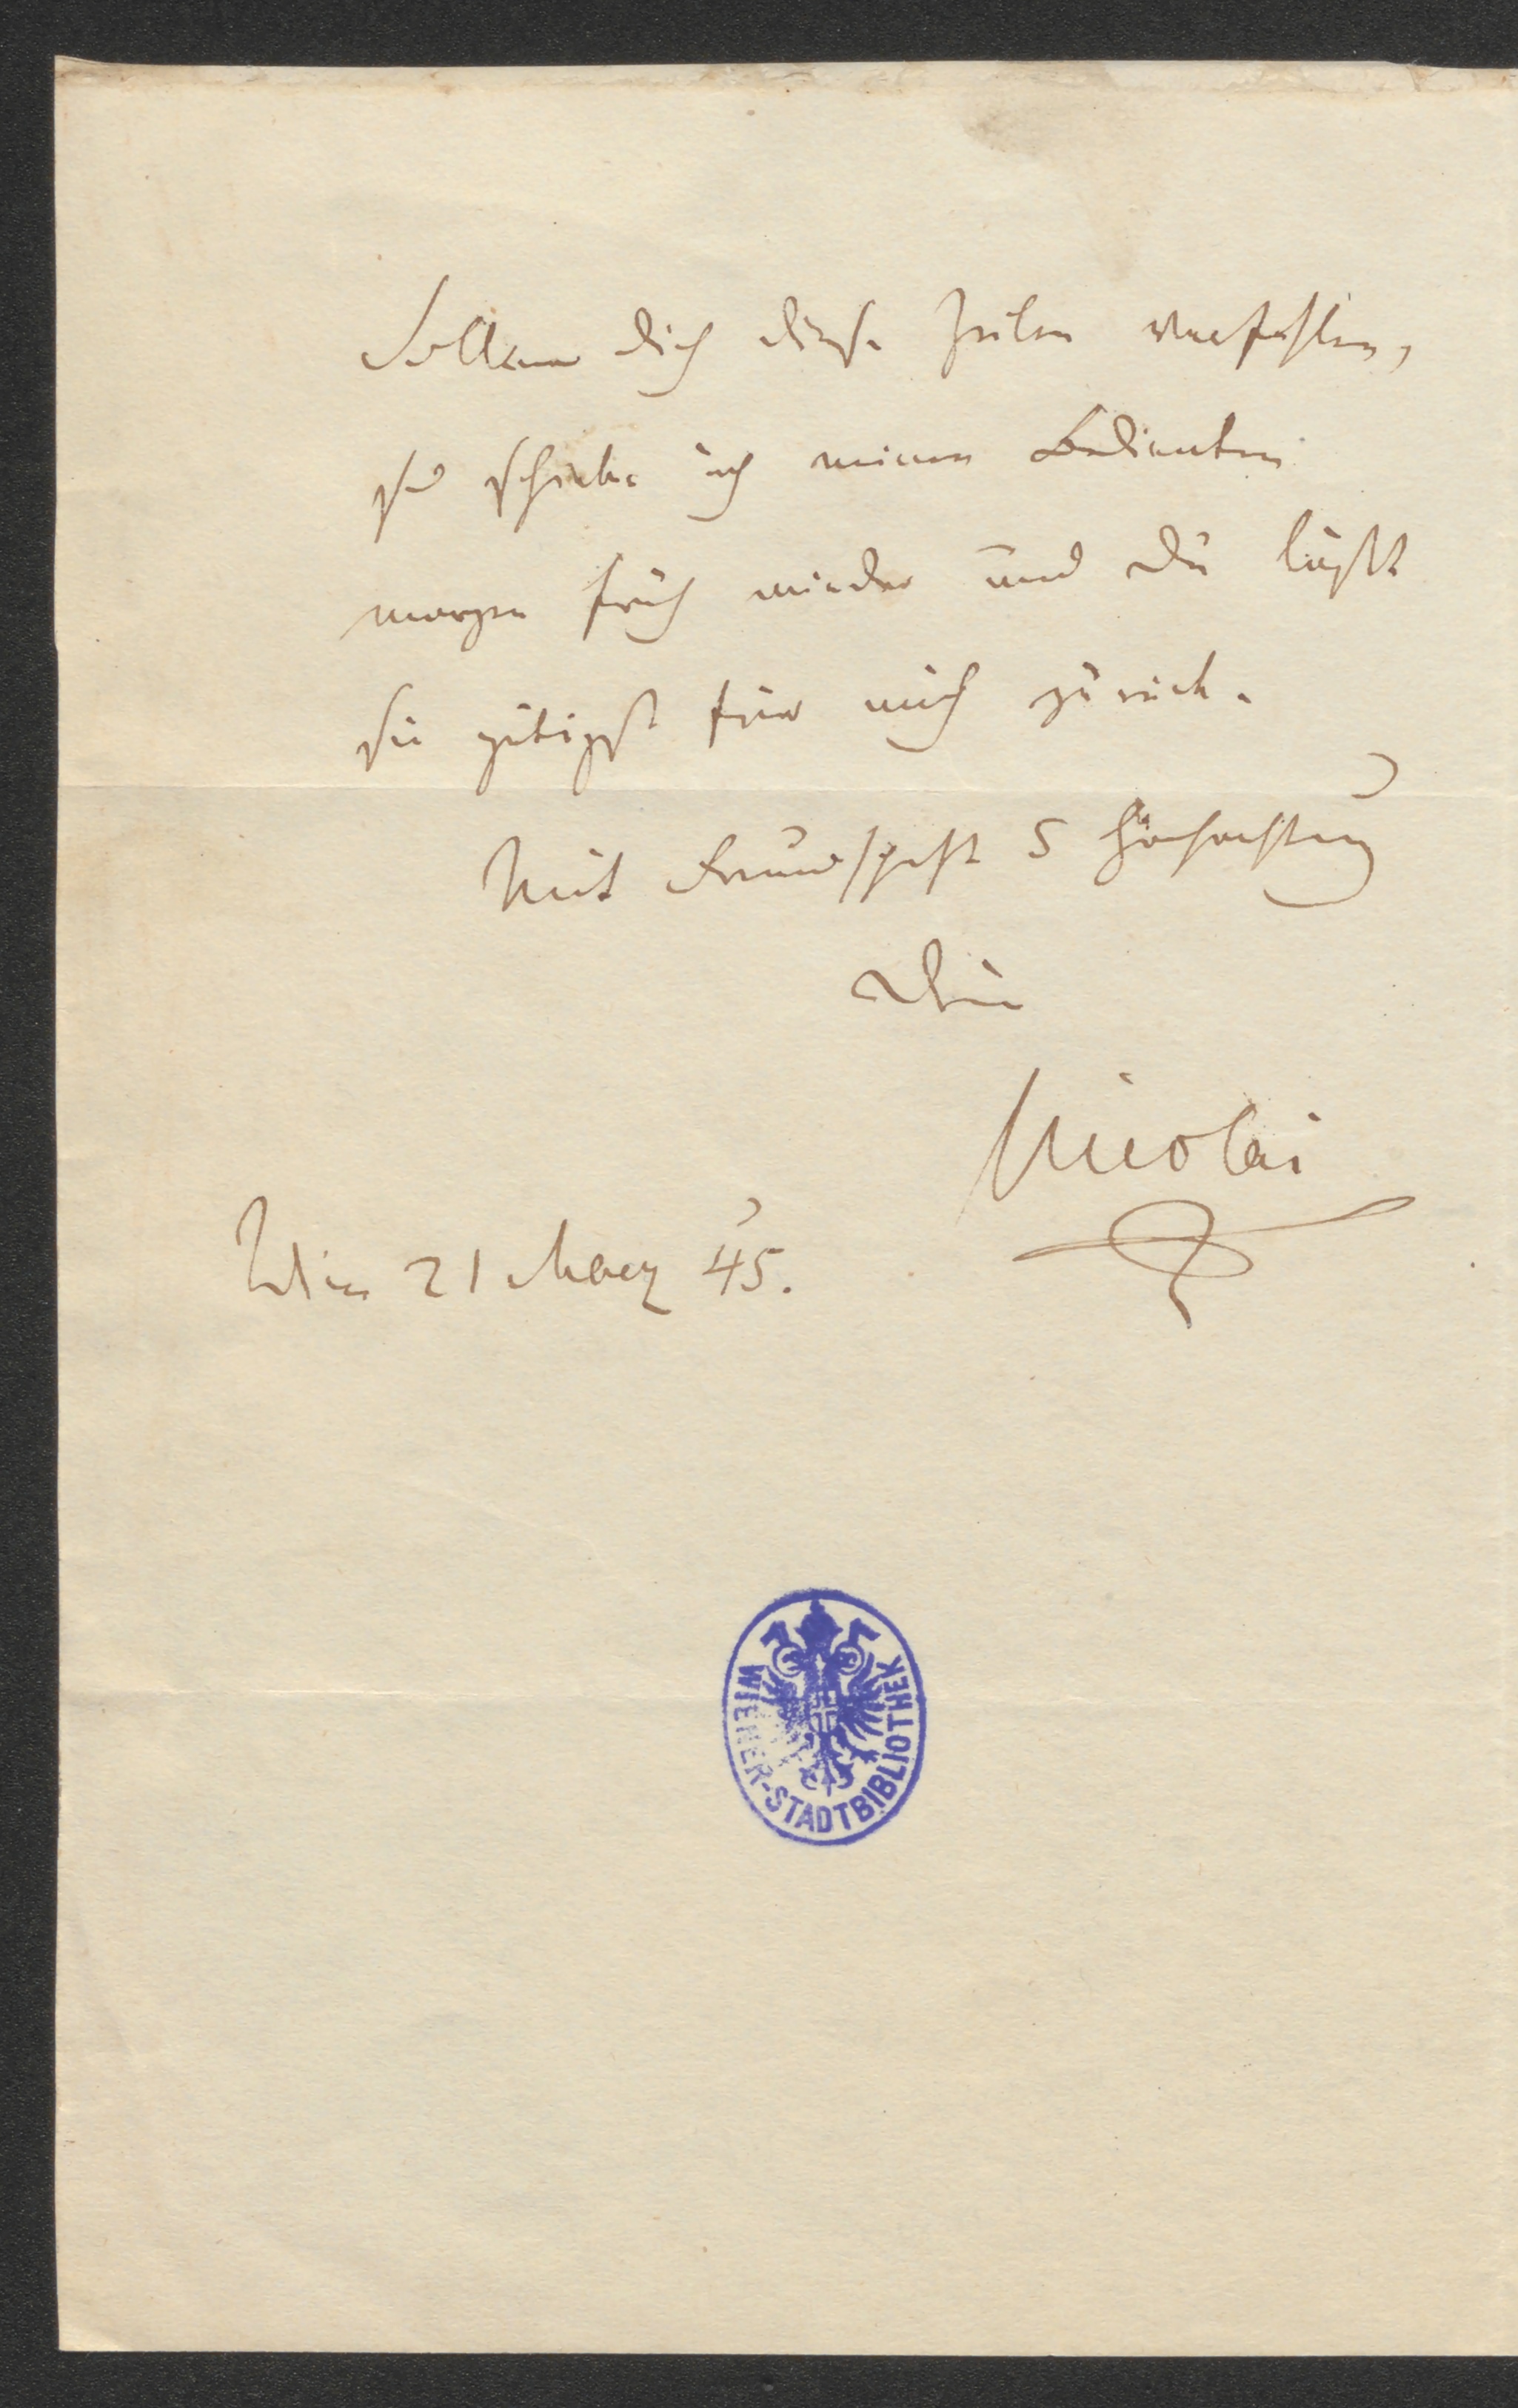 Sollten dich diese Zeilen verfehlen,
so schicke ich meinen Bedienten
morgen früh wieder und Du läßt
sie gütigst für mich zurück.
Mit Freundschaft & Hochachtung
Dein
Nicolai
Wien 21 Maerz 45.
WIENER-STADTBIBLIOTHEK